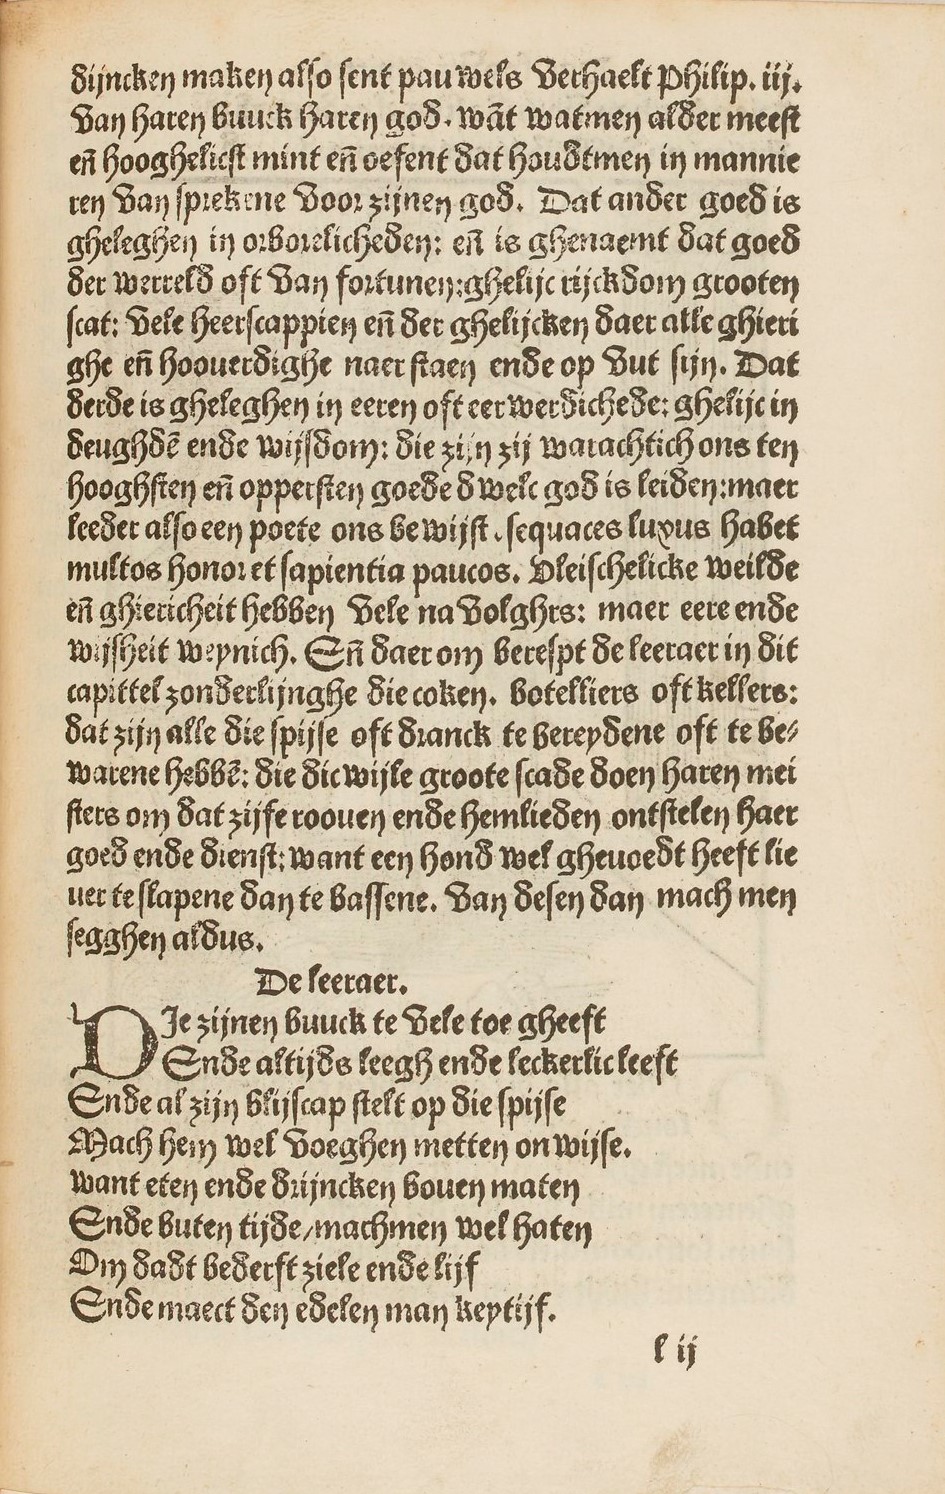 dijncken maken also sent pauwels verhaelt Philip. iij.
van haren buuck haren god. wāt watmen alder meest
eñ hooghelicst mint eñ oefent dat houdtmen in mannie
ren van sprekene voor zijnen god. Dat ander goed is
gheleghen in orborelicheden: eñ is ghenaemt dat goed
der werreld oft van fortunen: ghelijc rijckdom grooten
scat: vele heerscappien eñ der ghelijcken daer alle ghieri
ghe eñ hoouerdighe naer staen ende op vut sijn. Dat
derde is gheleghen in eeren oft eerwerdichede: ghelijc in
deughdē ende wijsdom: die zijn zij warachtich ons ten
hooghsten eñ oppersten goede dwelc god is leiden: maer
leeder also een poete ons bewijst. sequaces luxus habet
multos honor et sapientia paucos. Vleischelicke weilde
eñ ghiericheit hebben vele navolghrs: maer eere ende
wijsheit weynich. Eñ daer om berespt de leeraer in dit
capittel zonderlijnghe die coken. botelliers oft kellers:
dat zijn alle die spijse oft dranck te bereydene oft te be/
warene hebbē: die dicwijle groote scade doen haren mei
sters om dat zijse roouen ende hemlieden ontstelen haer
goed ende dienst: want een hond wel gheuoedt heeft lie
uer te slapene dan te bassene. Van desen dan mach men
segghen aldus.
De leeraer.
DIe zijnen buuck te vele toe gheeft
Ende altijds leegh ende leckerlic leeft
Ende al zijn blijscap stelt op die spijse
Mach hem wel voeghen metten onwijse.
want eten ende drijncken bouen maten
Ende buten tijde/machmen wel haten
Om dadt bederft ziele ende lijf
Ende maect den edelen man keytijf.
l ij